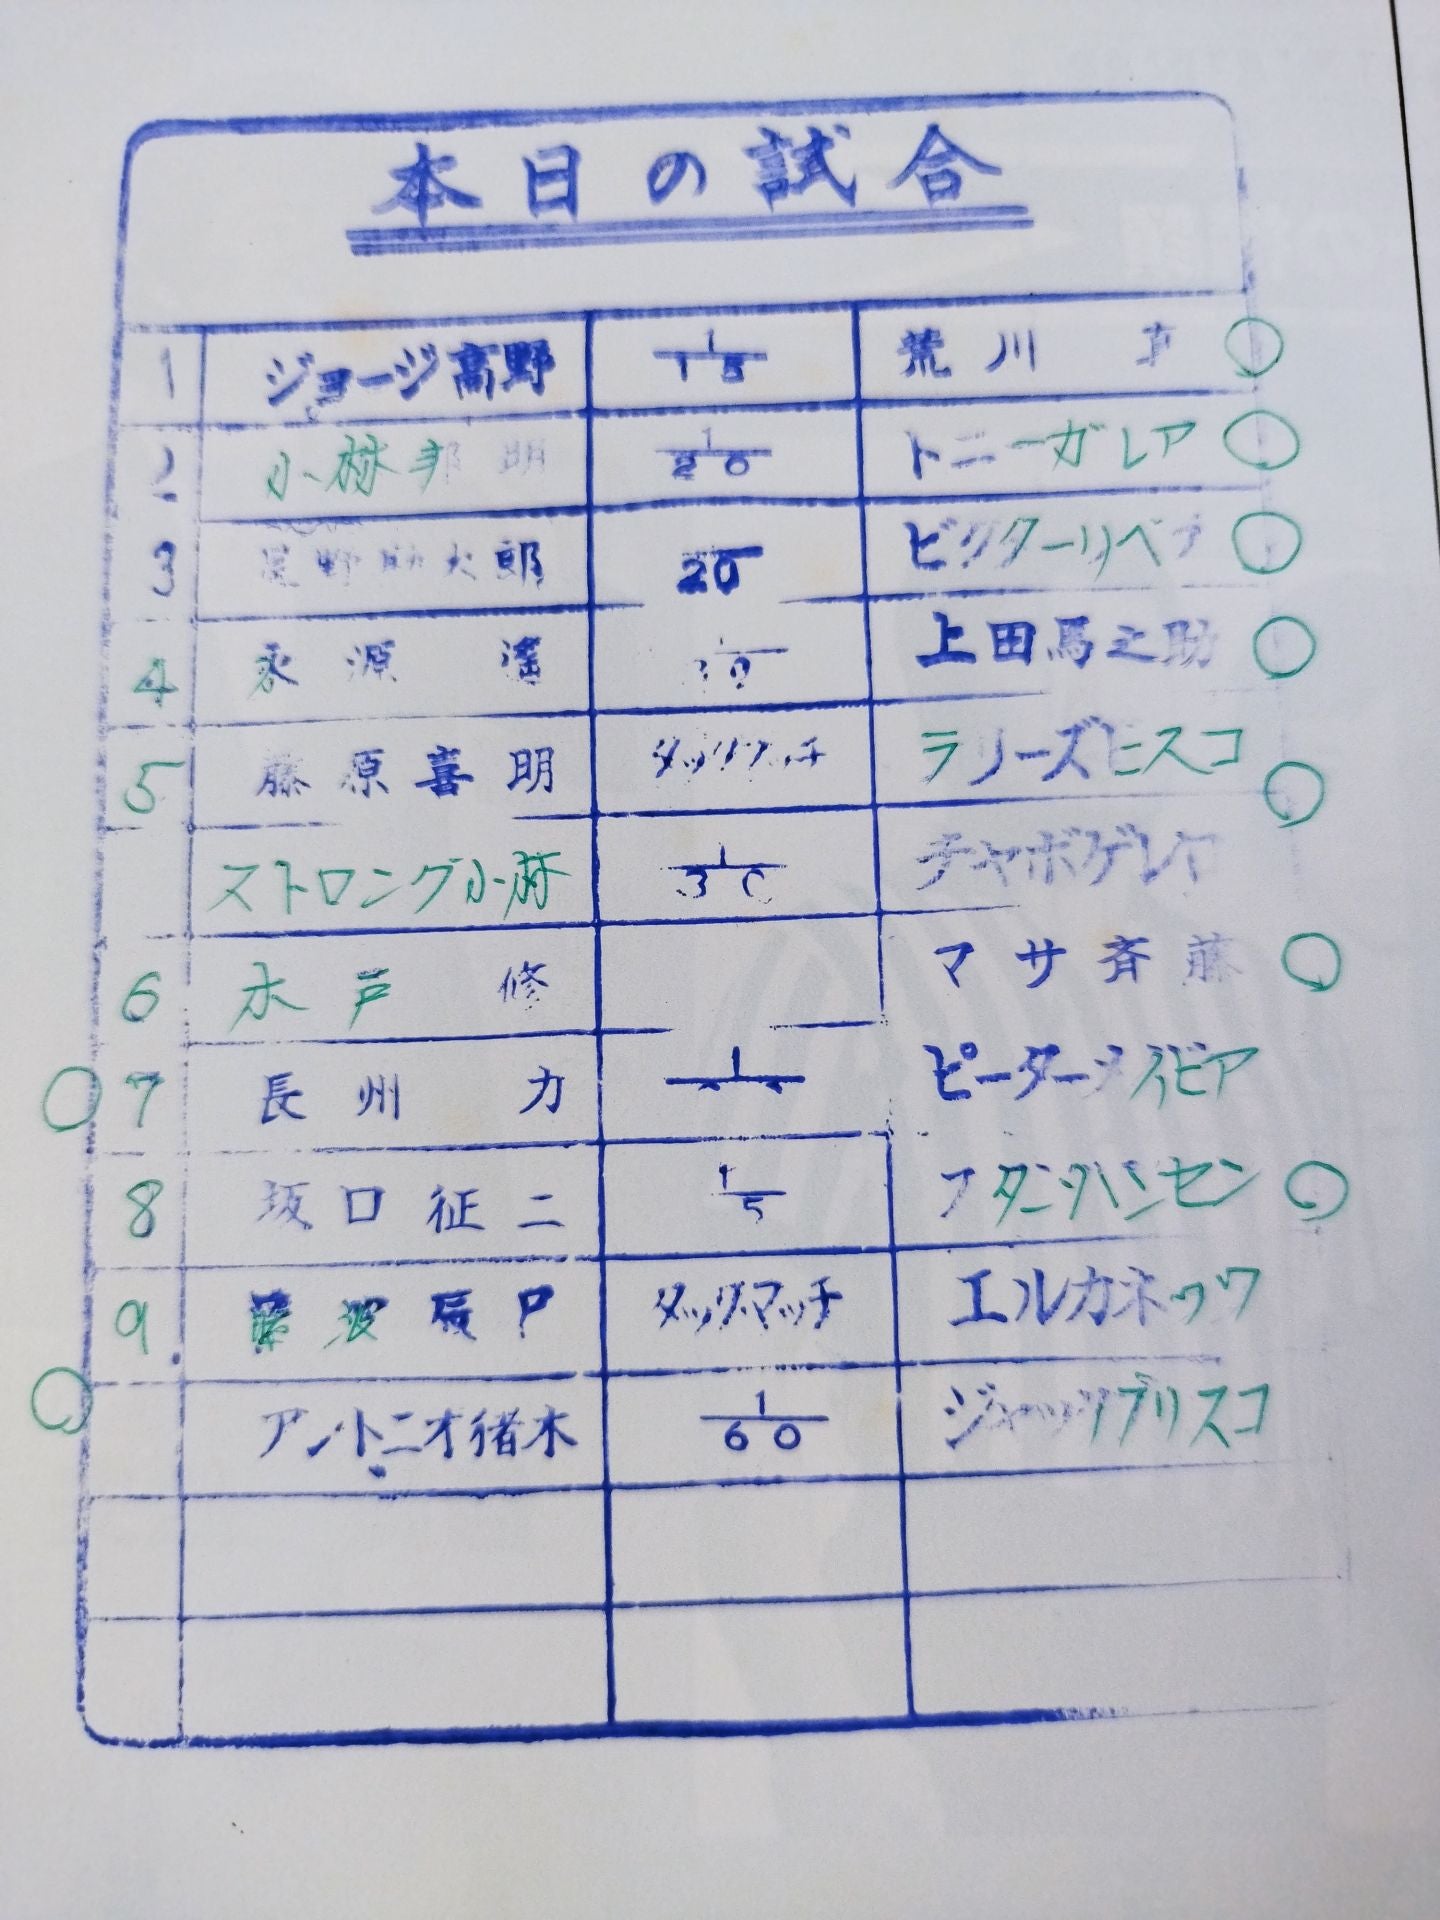 本日の試合
1 ジョージ高野 1/15 荒川
2 小林邦明 1/20 トニーガレア
3 星野勘太郎 20 ビクターリベラ
4 永源遙 上田馬之助
5 藤原喜明 タッグマッチ ラリーズビスコ
ストロング小林 1/30 チャボゲレロ
6 木戸修 マサ斉藤
7 長州力 1 ピーターメイビア
8 坂口征二 1/5 スタンハンセン
9 藤波辰巳 タッグマッチ エルカネック
アントニオ猪木 1/60 ジャックブリスコ